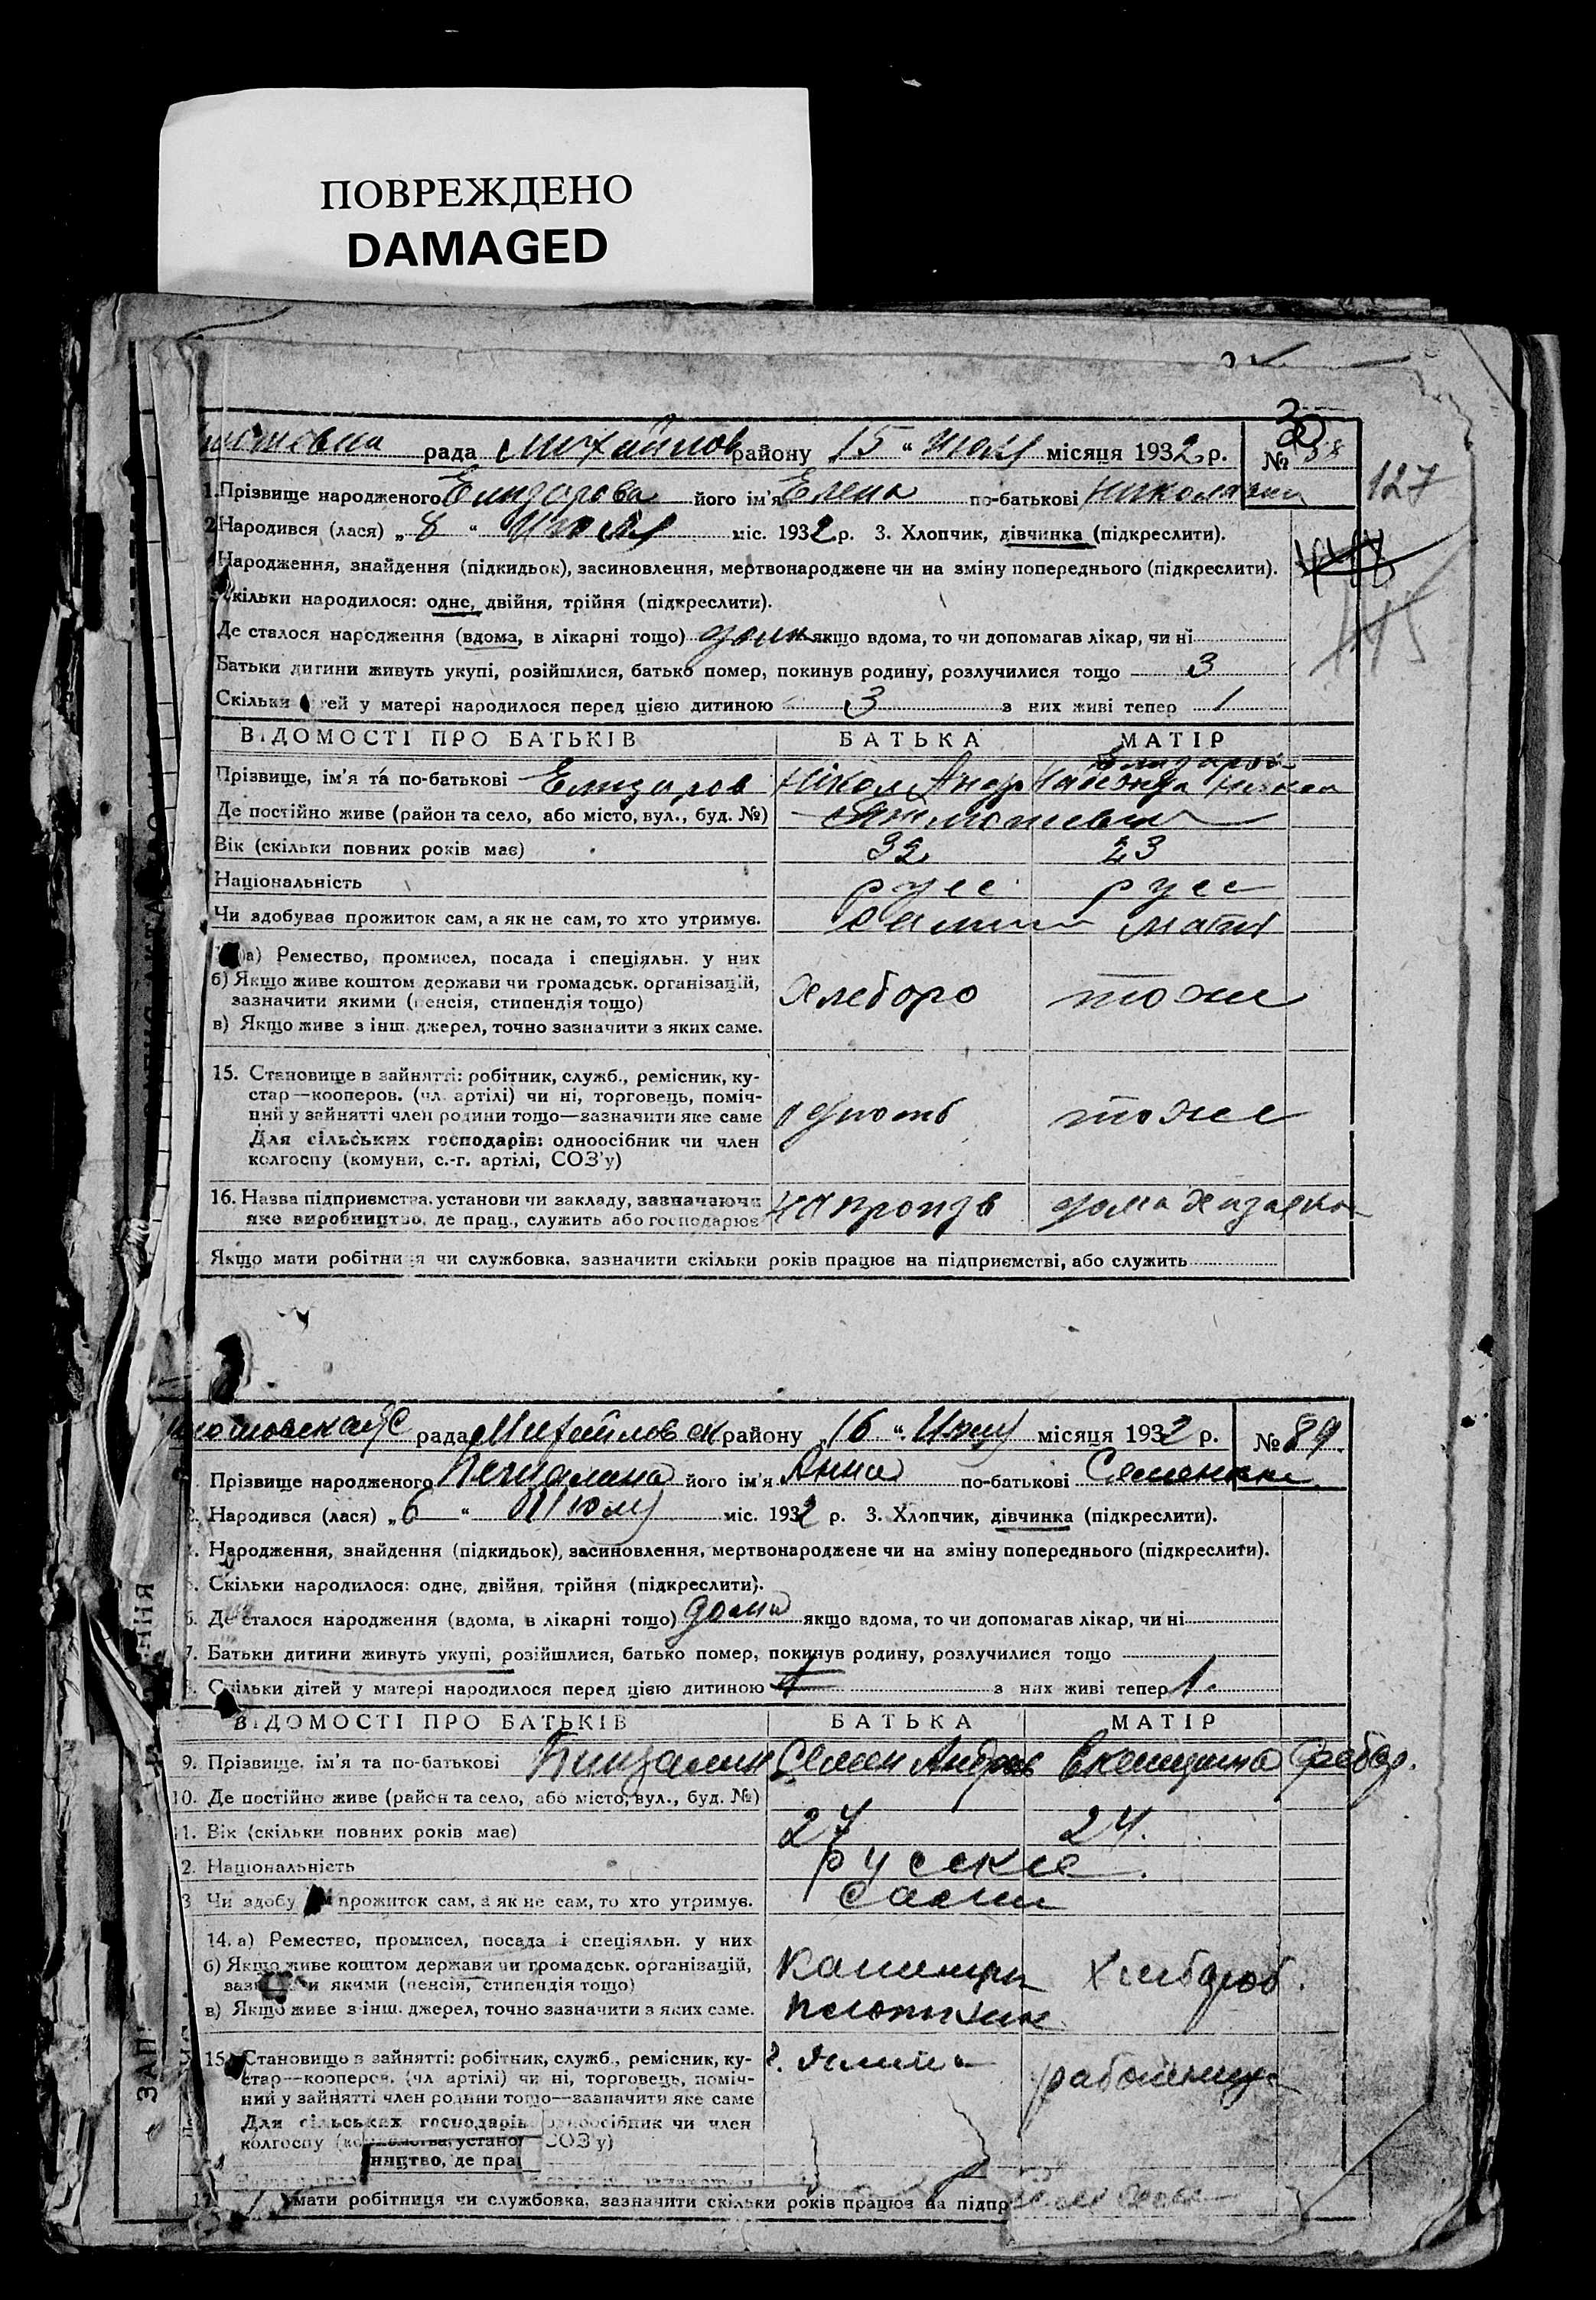 ПОВРЕЖДЕНО
DAMAGED
рада Михайлов району 15 " Июля місяця 1932 р. № 88
127
1. Прізвище народженого Елизарова його ім'я Елена по-батькові Николаевна
2. Народився (лася) „ 8 " Июля міс. 1932 р. 3. Хлопчик, дівчинка (підкреслити).
Народження, знайдення (підкидьок), засиновлення, мертвонароджене чи на зміну попереднього (підкреслити).
Скільки народилося: одне, двійня, трійня (підкреслити).
Де сталося народження (вдома, в лікарні тощо) дома якщо вдома, то чи допомагав лікар, чи ні
Батьки дитини живуть укупі, розійшлися, батько помер, покинув родину, розлучилися тощо 3
Скільки дітей у матері народилося перед цією дитиною 3 з них живі тепер 1
ВІДОМОСТІ ПРО БАТЬКІВ БАТЬКА МАТІР
Прізвище, ім'я та по-батькові Елизаров Нікол Андр Надежда
Де постійно живе (район та село, або місто, вул., буд. №)
Вік (скільки повних років має) 32 23
Національність русс русс
Чи здобував прожиток сам, а як не сам, то хто утримує. сами мать
а) Ремество, промисел, посада і спеціяльн. у них
б) Якщо живе коштом держави чи громадськ. організацій,
зазначити якими (пенсія, стипендія тощо) Хлеборо тоже
в) Якщо живе з інш. джерел, точно зазначити з яких саме.
15. Становище в зайнятті: робітник, служб., ремісник, ку-
стар—кооперов. (чл. артілі) чи ні, торговець, поміч-
ний у зайнятті член родини тощо—зазначити яке саме тоже
Для сільських господарів: одноосібник чи член
колгоспу (комуни, с.-г. артілі, СОЗ'у)
16. Назва підприємства, установи чи закладу, зазначаючи
яке виробництво, де прац., служить або господарює дома
Якщо мати робітниця чи службовка, зазначити скільки років працює на підприємстві, або служить
рада Михайловск району „ 16 " Июля місяця 1932 р. № 89.
Прізвище народженого його ім'я Анна по-батькові Семеновна
2. Народився (лася) „ 6 " Июля міс. 1932 р. 3. Хлопчик, дівчинка (підкреслити).
Народження, знайдення (підкидьок), засиновлення, мертвонароджене чи на зміну попереднього (підкреслити).
Скільки народилося: одне, двійня, трійня (підкреслити).
6. Де сталося народження (вдома, в лікарні тощо) дома якщо вдома, то чи допомагав лікар, чи ні
7. Батьки дитини живуть укупі, розійшлися, батько помер, покинув родину, розлучилися тощо
Скільки дітей у матері народилося перед цією дитиною 1 з них живі тепер 1.
ВІДОМОСТІ ПРО БАТЬКІВ БАТЬКА МАТІР
9. Прізвище, ім'я та по-батькові Семен Андрев Екатерина
10. Де постійно живе (район та село, або місто, вул., буд. №)
11. Вік (скільки повних років має) 27 24.
2. Національність русские
3 Чи здобу прожиток сам, а як не сам, то хто утримує. сами
14. а) Ремество, промисел, посада і спеціяльн. у них
б) Якщо живе коштом держави чи громадськ. організацій,
якими (пенсія, стипендія тощо) Хлебороб.
в) Якщо живе з інш. джерел, точно зазначити з яких саме. плотник
15. Становище в зайнятті: робітник, служб., ремісник, ку-
стар—кооперов. (чл. артілі) чи ні, торговець, поміч-
ний у зайнятті член родини тощо—зазначити яке саме работница
Для сільських господарів одноосібник чи член
колгоспу СОЗ'у)
ництво, де прац
мати робітниця чи службовка, зазначити скільки років працює на підпр